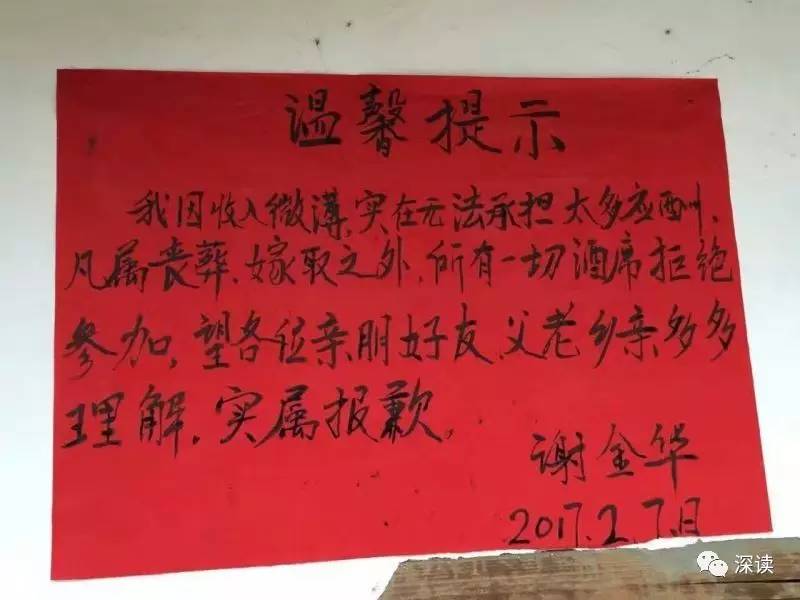 温馨提示
我因收入微薄,实在无法承担太多应酬、
凡属丧葬、嫁取之外,所有一切酒席拒绝
参加,望各位亲朋好友、父老乡亲多多
理解,实属报歉,
谢金华
2017.2.7.日
深读